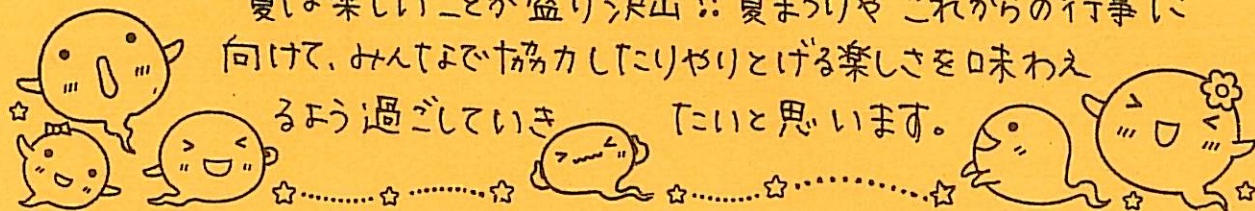 夏は楽しいことが盛り沢山!! 夏まつりや これからの行事に
向けて、みんなで協力したりやりとげる楽しさを味わえ
るよう過ごしていきたいと思います。